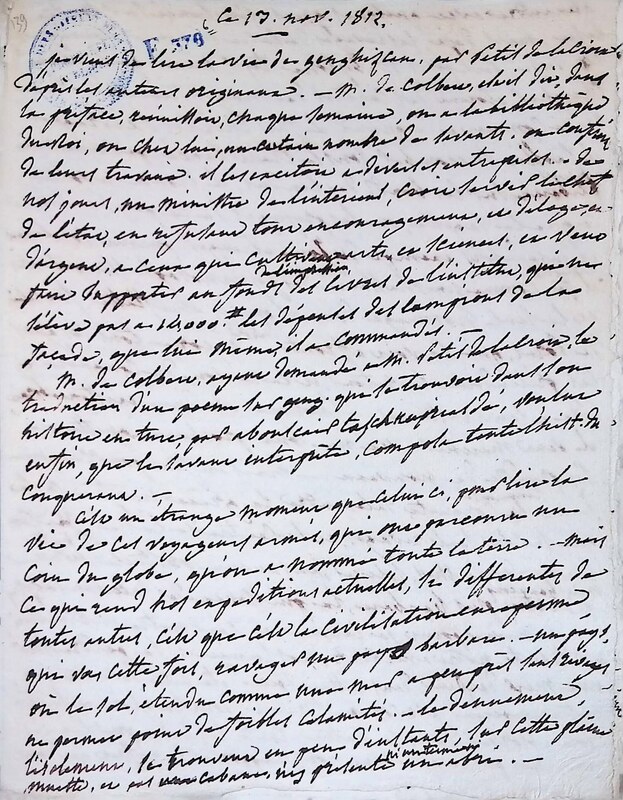 139
E 376
Ce 13. nov. 1812.
je viens de lire la vie de genghiscan, par Petit de la Croix
d'après les auteurs originaux. — M. de Colbert, est il dit, dans
la préface, réunissoit, chaque semaine, ou a la bibliothèque
du Roi, ou chez lui, un certain nombre de savants. on
de leurs travaux. il les excitoit a diverses entreprises. — de
nos jours, un ministre de l'intérieur, croit servir le chef
de l'état, en refusant tout encouragement, et d'éloge, et
d'argent, a ceux qui cultivent arts, et sciences, et veut
de l'impression
faire supporter au fonds des livres de l'institut, qui ne
s'élève pas a 12,000.# les dépenses des lampions de la
façade, que lui même, il a commandés. —
M. de Colbert, ayant demandé a M. Petit de la Croix, la
traduction d'un poeme sur geng. qui se trouvoit dans son
histoire en turc, par voulut
enfin, que le savant interprète, composa toute l'hist. du
Conquérant. —
C'est un étrange moment que celui ci, pour lire la
vie de ces voyageurs armés, qui ont parcouru un
coin du globe, qu'on a nommé toute la terre. — mais
ce qui rend nos expéditions actuelles, si differentes de
toutes autres, c'est que c'est la civilisation européenne
qui vas cette fois, ravager un pays barbare. — un pays,
où le sol, étendu comme une mer a peu près sans rivages
ne permet point de foibles calamités. — le dénuement,
l'isolement, se trouvent en peu d'instants, sur cette plaine
ni un termine
muette, et pas cabane, n'y présente un abri. —